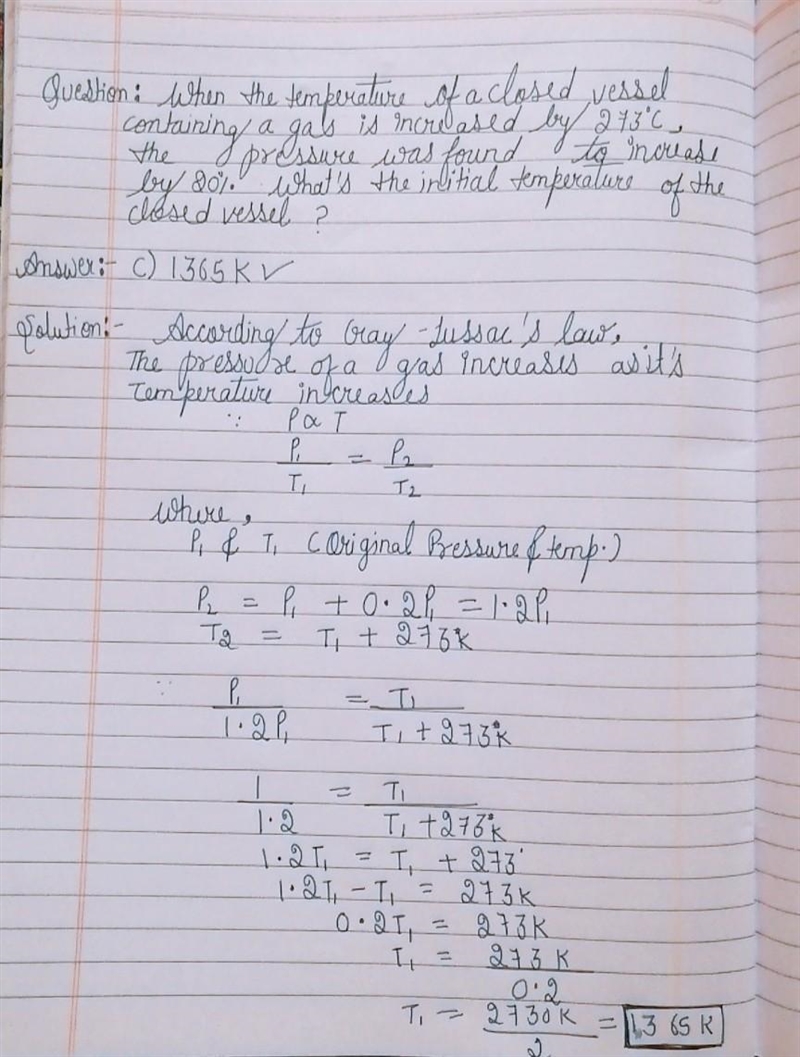 Question: When the temperature of a closed vessel
containing a gas is increased by 273°C,
the pressure was found to increase
by 20%. What's the initial temperature of the
closed vessel ?
Answer:- C) 1365 K ✓
Solution:- According to Gay - Lussac's law,
The pressure of a gas increases as it's
Temperature increases
∵ P ∝ T
P₁/T₁ = P₂/T₂
where,
P₁ & T₁ (Original Pressure & temp.)
P₂ = P₁ + 0.2P₁ = 1.2P₁
T₂ = T₁ + 273°K
∵ P₁/1.2P₁ = T₁/T₁ + 273°K
1/1.2 = T₁/T₁ + 273°K
1.2T₁ = T₁ + 273°
1.2T₁ - T₁ = 273K
0.2T₁ = 273K
T₁ = 273 K/0.2
T₁ = 2730K/2 = 1365 K